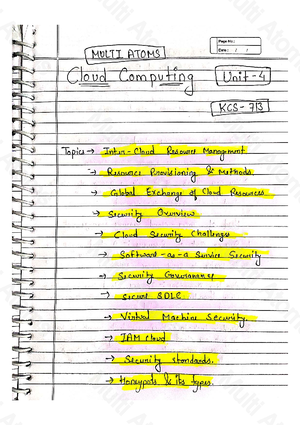 Page No.:
Date: / /
MULTI ATOMS
Cloud Computing Unit-4
KCS-713
Topics → Inter-Cloud Resource Management
→ Resource Provisioning & Methods.
→ Global Exchange of Cloud Resources
→ Security Overview
→ Cloud Security Challenges
→ Software-as-a Service Security
→ Security Governance
→ Secure SDLC
→ Virtual Machine Security.
→ IAM cloud
→ Security standards.
→ Honeypots & its types.